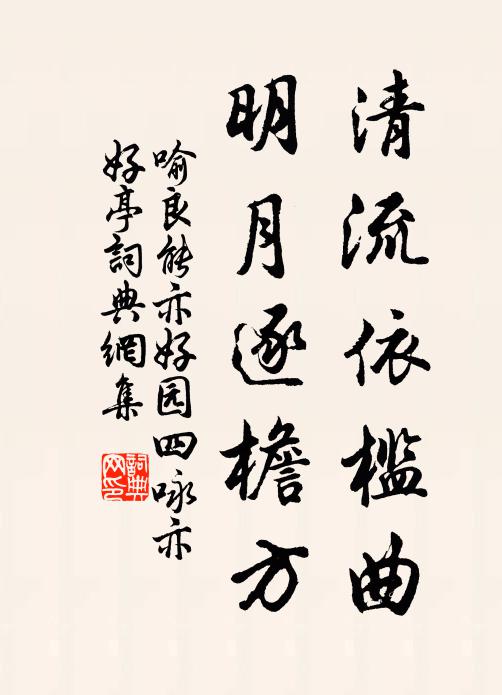 清流依槛曲
明月逐檐方
喻良能亦好园四咏亦
好亭詞典網集
詞典
网印